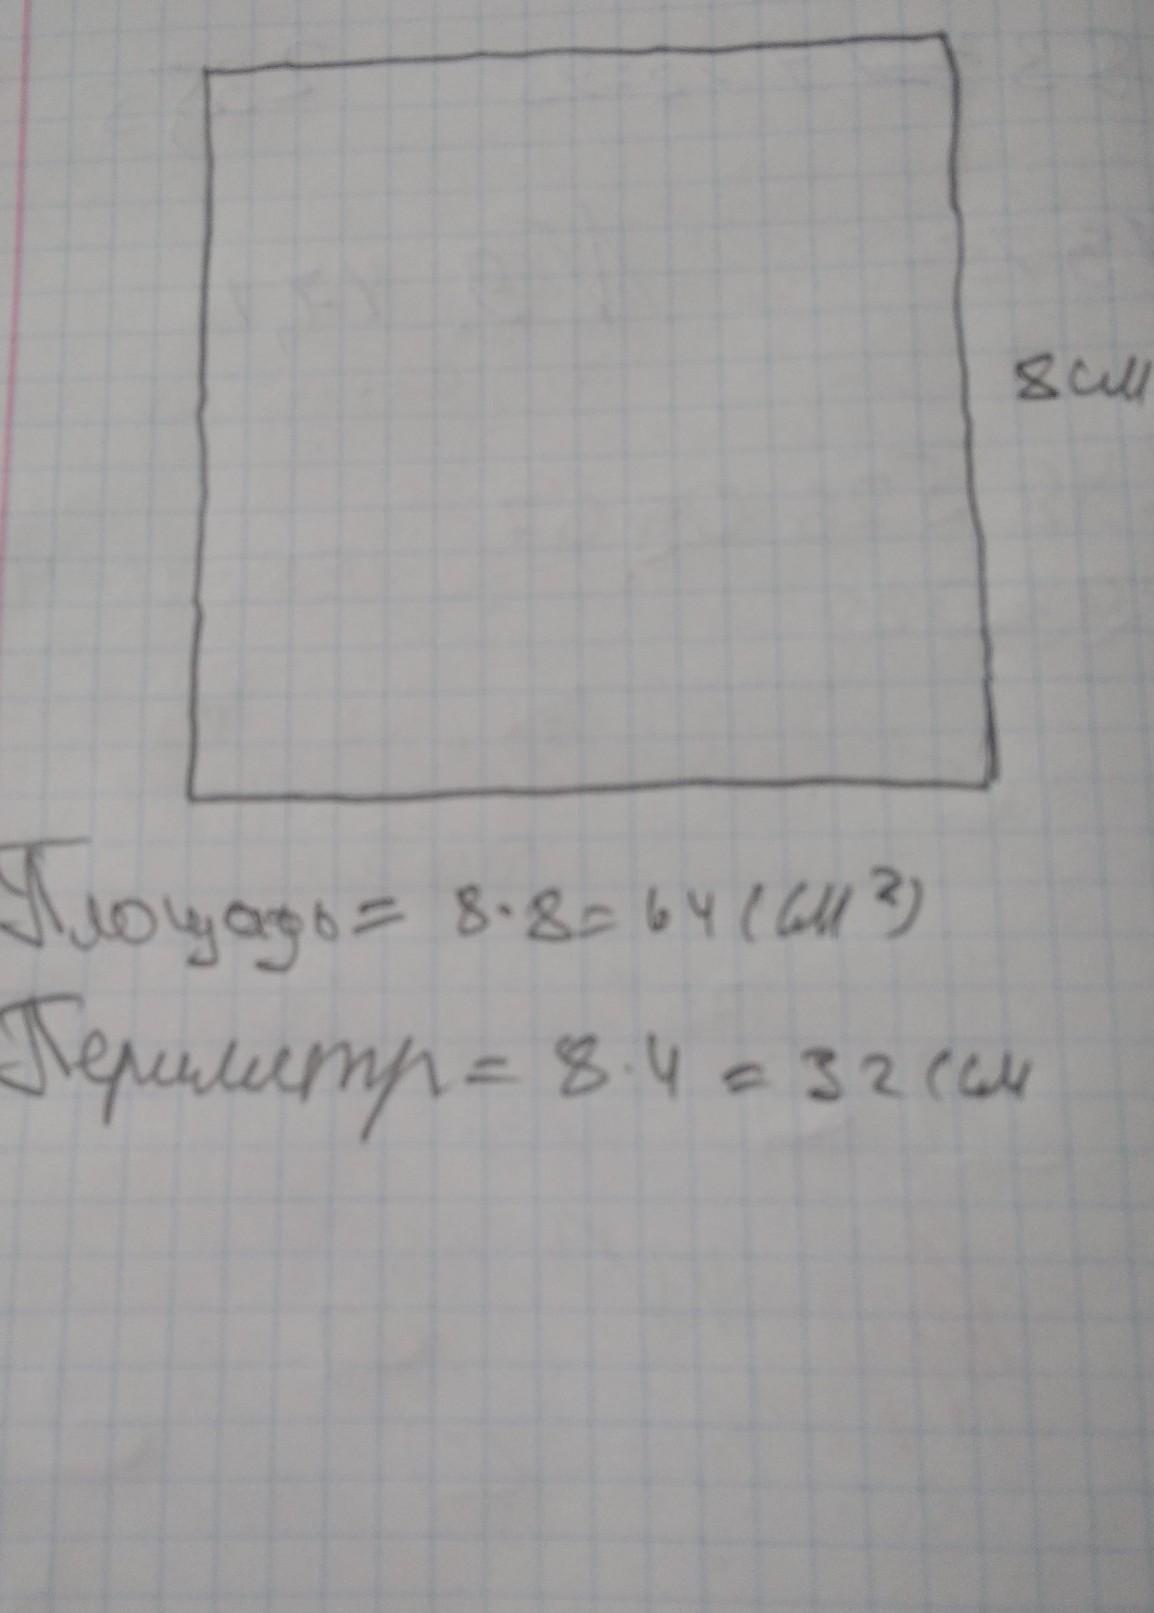 8см
Площадь = 8·8= 64 (см²)
Периметр = 8·4 = 32 (см